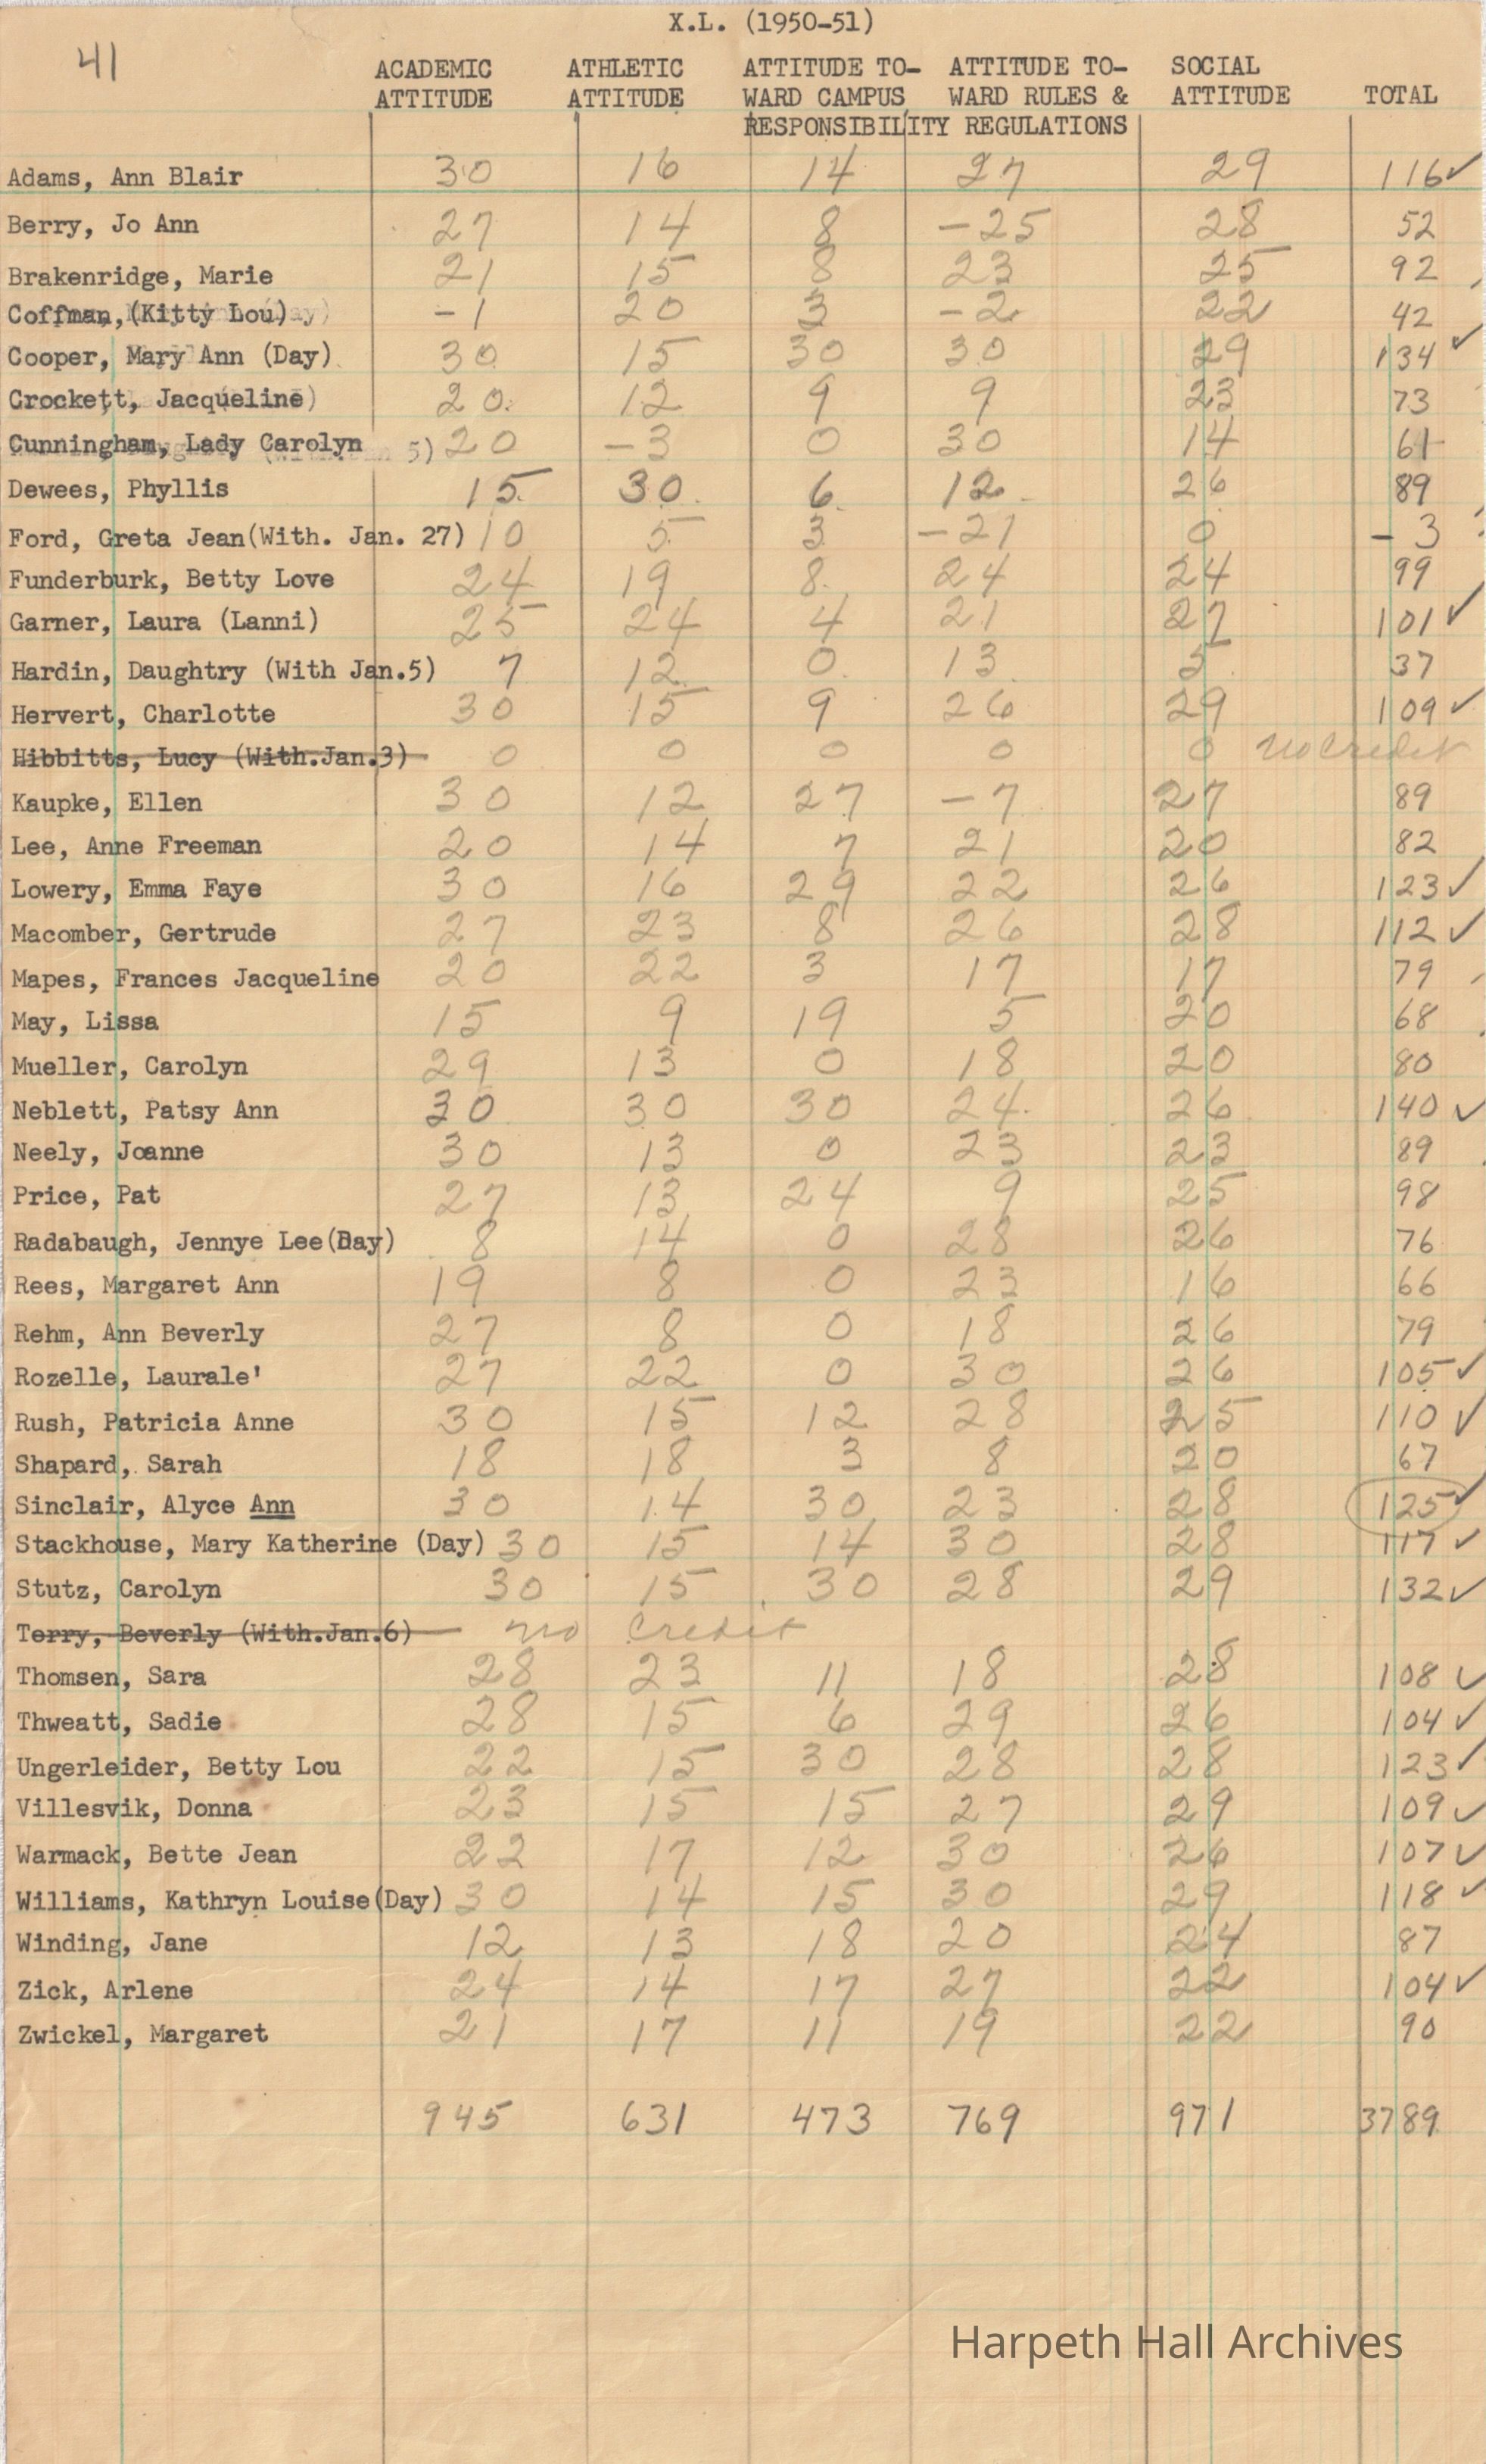 X.L. (1950-51)
41
ACADEMIC ATTITUDE ATHLETIC ATTITUDE ATTITUDE TO-WARD CAMPUS RESPONSIBILITY ATTITUDE TO-WARD RULES & REGULATIONS SOCIAL ATTITUDE TOTAL
Adams, Ann Blair 30 16 14 27 29 116✓
Berry, Jo Ann 27 14 8 -25 28 52
Brakenridge, Marie 21 15 8 23 25 92
Coffman, (Kitty Lou) -1 20 3 -2 22 42
Cooper, Mary Ann (Day) 30 15 30 30 29 134✓
Crockett, Jacqueline 20 12 9 9 23 73
Cunningham, Lady Carolyn 20 -3 0 30 14 61
Dewees, Phyllis 15 30 6 12 26 89
Ford, Greta Jean(With. Jan. 27) 10 5 3 -21 0 -3
Funderburk, Betty Love 24 19 8 24 24 99
Garner, Laura (Lanni) 25 24 4 21 27 101✓
Hardin, Daughtry (With Jan.5) 7 12 0 13 5 37
Hervert, Charlotte 30 15 9 26 29 109✓
Hibbitts, Lucy (With.Jan.3) 0 0 0 0 0 no credit
Kaupke, Ellen 30 12 27 -7 27 89
Lee, Anne Freeman 20 14 7 21 20 82
Lowery, Emma Faye 30 16 29 22 26 123✓
Macomber, Gertrude 27 23 8 26 28 112✓
Mapes, Frances Jacqueline 20 22 3 17 17 79
May, Lissa 15 9 19 5 20 68
Mueller, Carolyn 29 13 0 18 20 80
Neblett, Patsy Ann 30 30 30 24 26 140✓
Neely, Joanne 30 13 0 23 23 89
Price, Pat 27 13 24 9 25 98
Radabaugh, Jennye Lee(Day) 8 14 0 28 26 76
Rees, Margaret Ann 19 8 0 23 16 66
Rehm, Ann Beverly 27 8 0 18 26 79
Rozelle, Laurale' 27 22 0 30 26 105✓
Rush, Patricia Anne 30 15 12 28 25 110✓
Shapard, Sarah 18 18 3 8 20 67
Sinclair, Alyce Ann 30 14 30 23 28 125✓
Stackhouse, Mary Katherine (Day) 30 15 14 30 28 117✓
Stutz, Carolyn 30 15 30 28 29 132✓
Terry, Beverly (With.Jan.6) no credit
Thomsen, Sara 28 23 11 18 28 108✓
Thweatt, Sadie 28 15 6 29 26 104✓
Ungerleider, Betty Lou 22 15 30 28 28 123✓
Villesvik, Donna 23 15 15 27 29 109✓
Warmack, Bette Jean 22 17 12 30 26 107✓
Williams, Kathryn Louise(Day) 30 14 15 30 29 118✓
Winding, Jane 12 13 18 20 24 87
Zick, Arlene 24 14 17 27 22 104✓
Zwickel, Margaret 21 17 11 19 22 90
945 631 473 769 971 3789
Harpeth Hall Archives